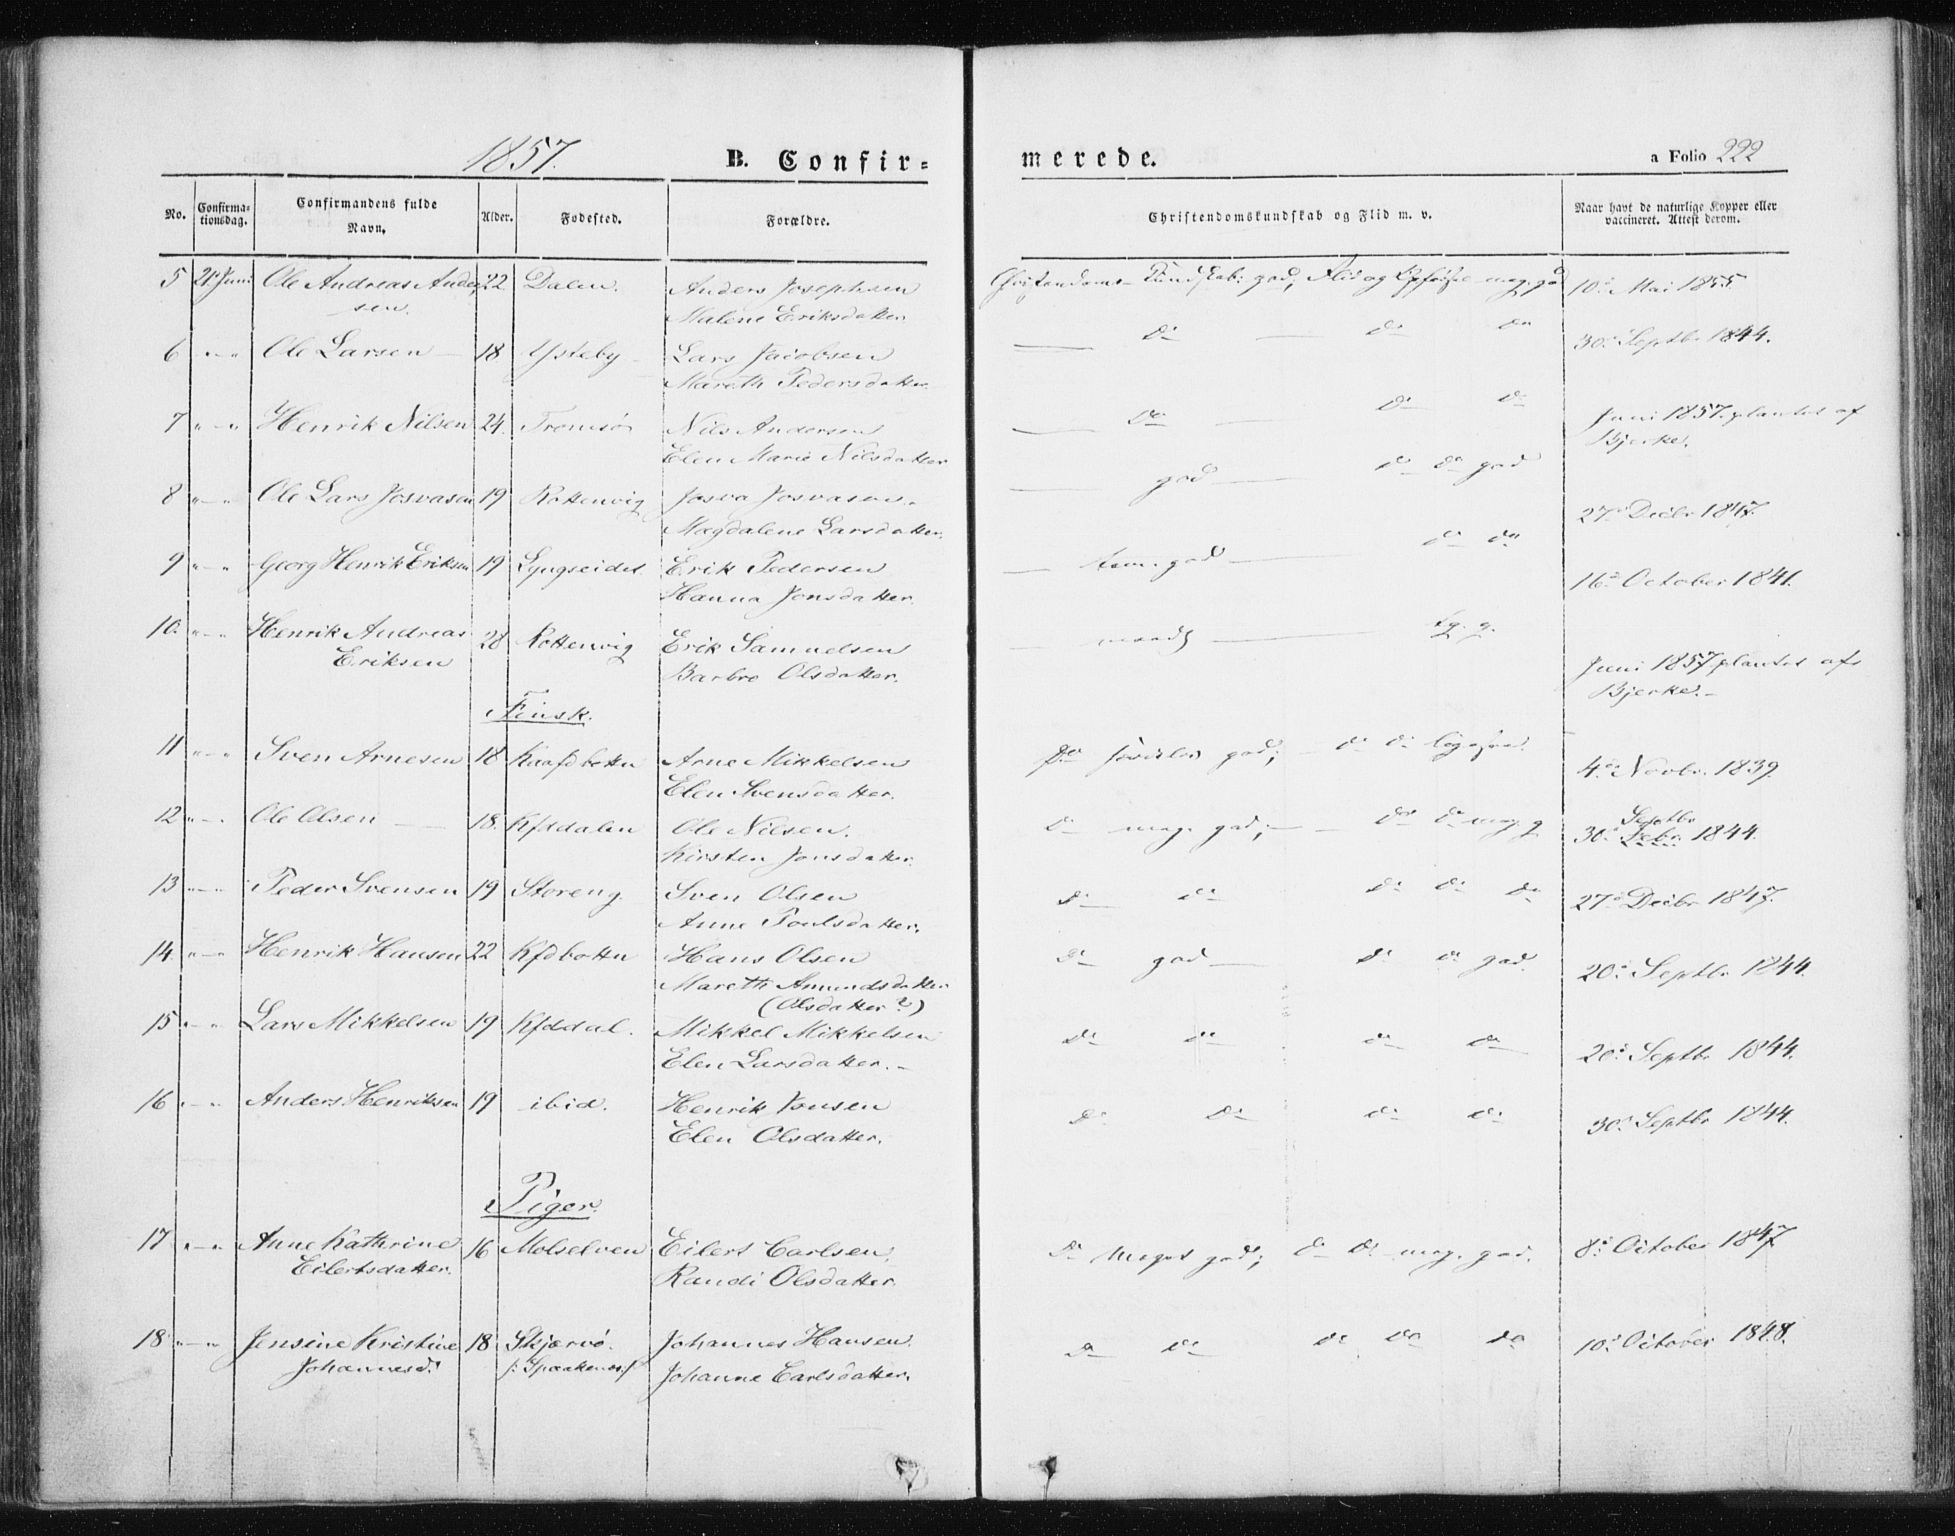 1857.
B. Confir=
merede.
a Folio 222
No.
Confirma-
tionsdag.
Confirmandens fulde
Navn.
Alder.
Fodested.
Forældre.
Christendomskundskab og Flid m. v.
Naar havt de naturlige Kopper eller
vaccineret. Attest derom.
5 21. Juni Ole Andreas Ander 22 Dalen. Anders Josephsen Christendoms-Kundskab: god; Flid og Opførsel meg. god 10de Mai 1855.
sen. Malene Eriksdatter
6 "—" Ole Larsen — 18 Ysteby Lars Jacobsen — do — do do 30d Septbr 1844.
Mareth Pedersdatter
7 "—" Henrik Nilsen 24. Tromsö Nils Andersen — do — do do Juni 1857. plantet af
Elen Marie Nilsdatter Bjerke.
8 "—" Ole Lars Josvasen 19 Rottenvig Josva Josvasen. — god — do do god 27d Decbr 1847.
Magdalene Larsdatter.
9 "—" Georg Henrik Eriksen 19 Lyngseidet Erik Pedersen — tem. god — do do 16d October 1841.
Hanna Jonsdatter.
10. "—" Henrik Andreas 28 Rottenvig Erik Samuelsen — — g.
Eriksen Barbro Olsdatter. Juni 1857 plantet af
Bjerke.—
Finsk.
11 "—" Sven Arnesen 18 Kaafdbotten Arne Mikkelsen do god; — do do 4de Novbr. 1839.
Elen Svensdatter.
12 "—" Ole Olsen — 18. Kfddalen Ole Nilsen. do meg. god; — do do meg. g Septbr
30d Febr. 1844.
Kirsten Jonsdatter.
13 "—" Peder Svensen 19 Storeng. Sven Olsen do do do do do 27d Decbr 1847.
Anne Poulsdatter.
14. "—" Henrik Hansen 22 Kfdbotten Hans Olsen do god — do do god. 20d Septbr 1844.
Mareth Amundsdatter
(Olsdatter?)
15 "—" Lars Mikkelsen 19 Kfddal. Mikkel Mikkelsen do do do do 20d Septbr 1844.
Elen Larsdatter.—
16 "—" Anders Henriksen 19 ibid. Henrik Jonsen do do do do 30d Septbr 1844.
Elen Olsdatter.
Piger.
17 "—" Anne Kathrine 16 Molselven Eilert Carlsen. do Meget god; do do meg. god. 8de October 1847
Eilertsdatter. Randi Olsdatter.
18 "—" Jensine Kristine 18 Skjærvö. Johannes Hansen. do do do do do 10d October 1848.
Johannesd. Johanne Carlsdatter.